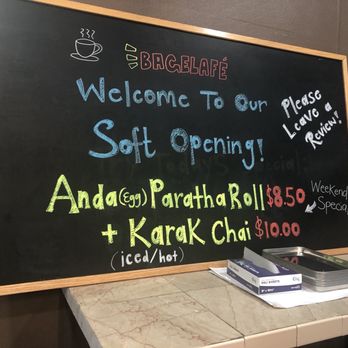 BAGELAFÉ
Welcome To Our
Soft Opening!
Please
Leave a
Review!
Anda (Egg) Paratha Roll $8.50
+ Karak Chai $10.00
(iced/hot)
Weekend
Special